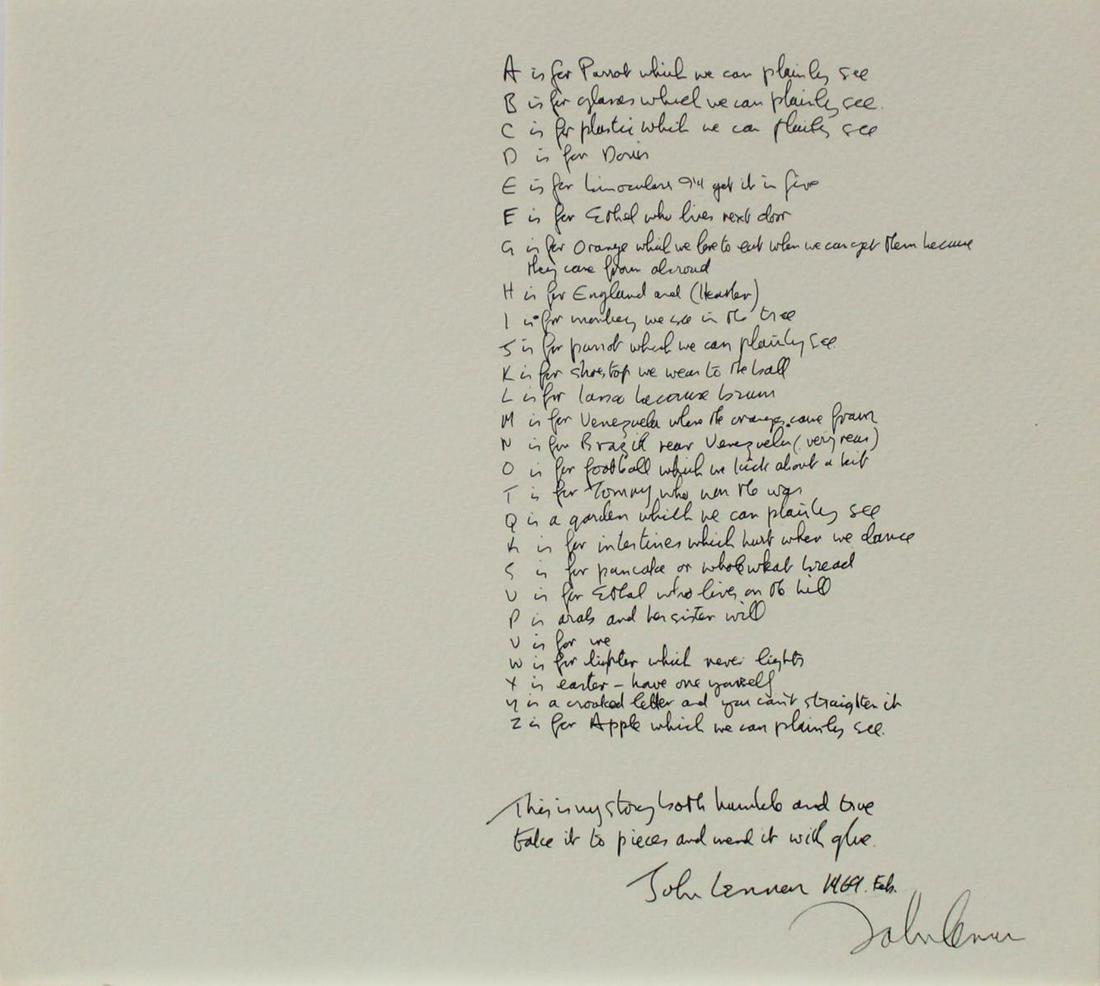 A is for Parrot which we can plainly see
B is for glasses which we can plainly see.
C is for plastic which we can plainly see
D is for Doris
E is for binoculars I'll get it in five
E is for Ethel who lives next door
G is for Orange which we love to eat when we can get them because
they come from abroad
H is for England and (Heather)
I is for monkey we see in the tree
J is for parrot which we can plainly see.
K is for shoetop we wear to the ball
L is for because brown
M is for Venezuela where the oranges come from
N is for Brazil near Venezuela (very near)
O is for football which we kick about a bit
T is for Tommy who won the war
Q is a garden which we can plainly see
R is for intestines which hurt when we dance
S is for pancake or wholewheat bread
U is for Ethel who lives on the hill
P is arabs and her sister will
V is for me
W is for lighter which never lights
X is easter - have one yourself
Y is a crooked letter and you can't straighten it
Z is for Apple which we can plainly see.
This is my story both humble and true
take it to pieces and mend it with glue.
John Lennon 1969. Feb.
John Lennon